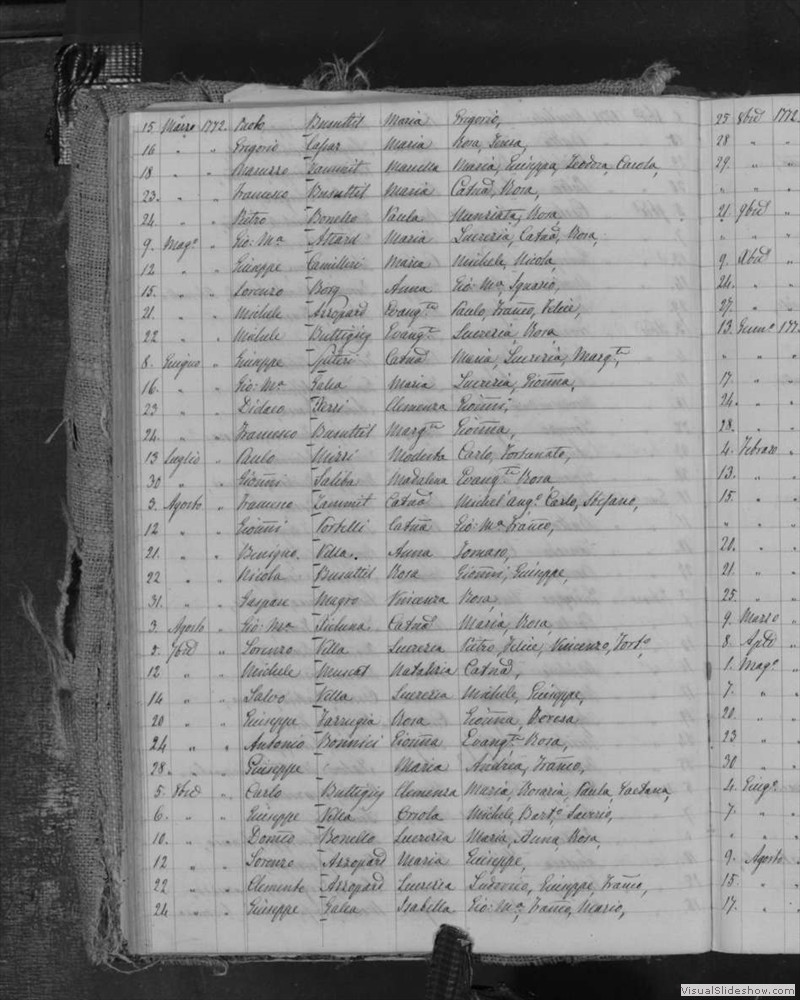 15 Marzo 1772 Paolo Busuttil Maria Grigorio,
16 " " Grigorio Casar Maria Rosa, Teresa,
18 " " Zammit Mariella Maria, Giuseppa, Teodora, Carola,
23. " " Francesco Busuttil Maria Catnā, Rosa,
24. " " Pietro Bonello Paula Nunziata, Rosa,
9. Magº " Gio: Mª Attard Maria Lucrezia, Catnā, Rosa,
12 " " Giuseppe Camilleri Maria Michele, Nicola,
15. " " Lorenzo Borg Anna Gio: Mª Ignazio,
21. " " Michele Azzopard Evangᵗᵃ Paulo, Franco, Felice,
22 " " Michele Buttigieg Evangᵗᵃ Lucrezia, Rosa,
8. Giugno " Giuseppe Spiteri Catnā Maria, Lucrezia, Margᵗᵃ,
16. " " Gio: Mª Galea Maria Lucrezia, Gionna,
23 " " Didaco Ferri Clemenza Gionni,
24. " " Francesco Busuttil Margᵗᵃ Gionna,
13 Luglio " Paulo Mizzi Modesta Carlo, Fortunato,
30 " " Gionni Saliba Madalena Evangᵗᵃ Rosa
3. Agosto " Francesco Zammit Catnā Michel'angº Carlo, Stefano,
12 " " Gionni Portelli Catnā Gio: Mª Franco,
21. " " Benigno Villa. Anna Tomaso,
22 " " Nicola Busuttil Rosa Gionni, Giuseppe,
31. " " Gaspare Magro Vincenza Rosa
3. Agosto " Gio: Mª Xicluna Catnā Maria, Rosa,
2. 7bre " Lorenzo Villa Lucrezia Pietro, Felice, Vincenzo, Fortº
12 " " Michele Muscat Natalizia Catnā,
14 " " Salvo Villa Lucrezia Michele, Giuseppe,
20 " " Giuseppe Farrugia Rosa Gionna, Teresa
24 " " Antonio Bonnici Gionna Evangᵗᵃ Rosa,
28. " " Giuseppe Maria Andrea, Franco,
5. 8bre " Carlo Buttigieg Clemenza Maria, Rosaria, Paula, Gaetana,
6. " " Giuseppe Villa Orsola Michele, Bartº Saverio,
10. " " Domco Bonello Lucrezia Maria, Anna, Rosa,
12 " " Lorenzo Azzopard Maria Giuseppe,
22 " " Clemente Azzopard Lucrezia Ludovico, Giuseppe, Franco,
24 " " Giuseppe Galea Isabella Gio: Mª, Franco, Mario,
25 8bre 1772
28 " "
29. " "
" " "
21. 9bre "
" " "
9. Xbre "
24. " "
27. " "
13. Genº 1773
" " "
17. " "
24. " "
28. " "
4. Febraro "
13. " "
15. " "
" " "
20. " "
21. " "
25. " "
9. Marzo "
8. Aple "
1. Magº "
7. " "
20. " "
23 " "
30 " "
4. Giugº "
7. " "
" " "
9. Agosto "
15. " "
17. " "
VisualSlideshow.com